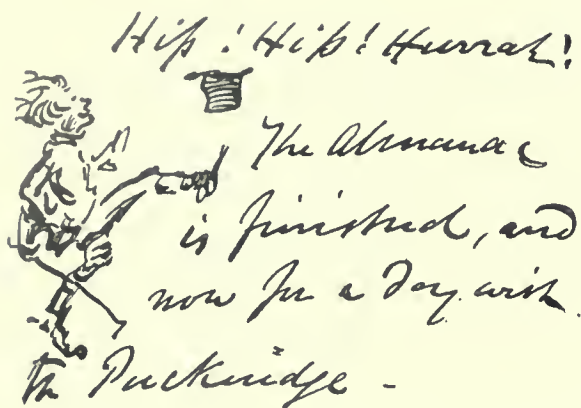 Hip! Hip! Hurrah!
The Almanac
is finished, and
now for a day with
the Puckeridge -